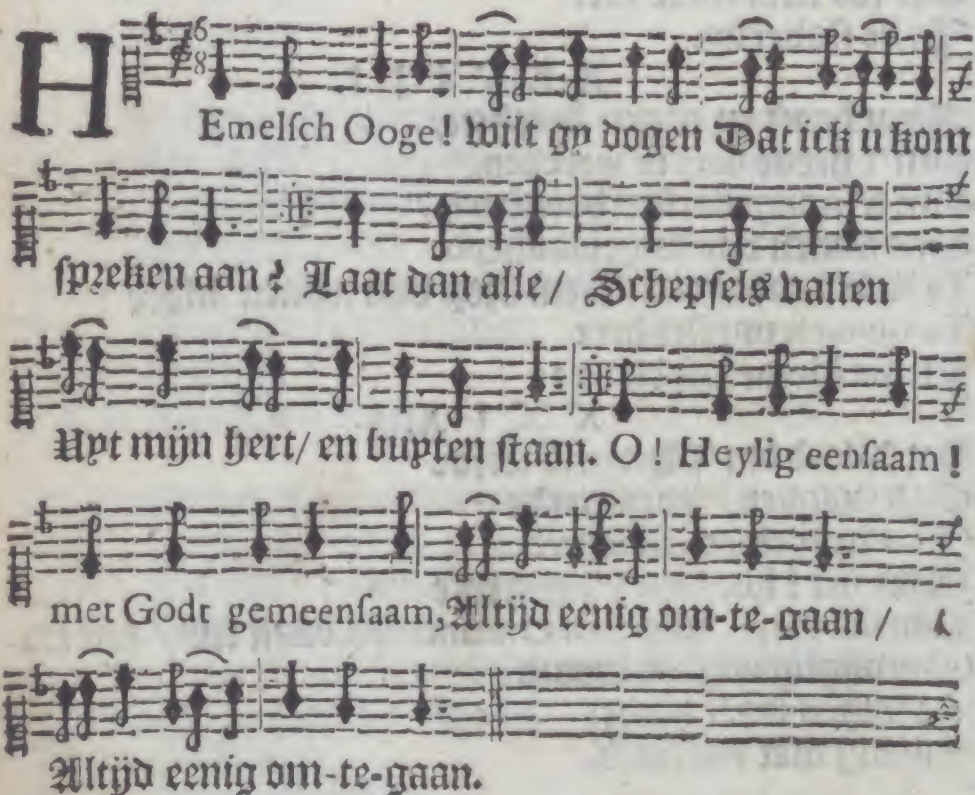 HEmelſch Ooge! wilt gy dogen Dat ick u kom
ſpreken aan? Laat dan alle/ Schepſels vallen
Uyt mijn hert/ en buyten ſtaan. O! Heylig eenſaam!
met Godt gemeenſaam, Altijd eenig om-te-gaan /
Altijd eenig om-te-gaan.